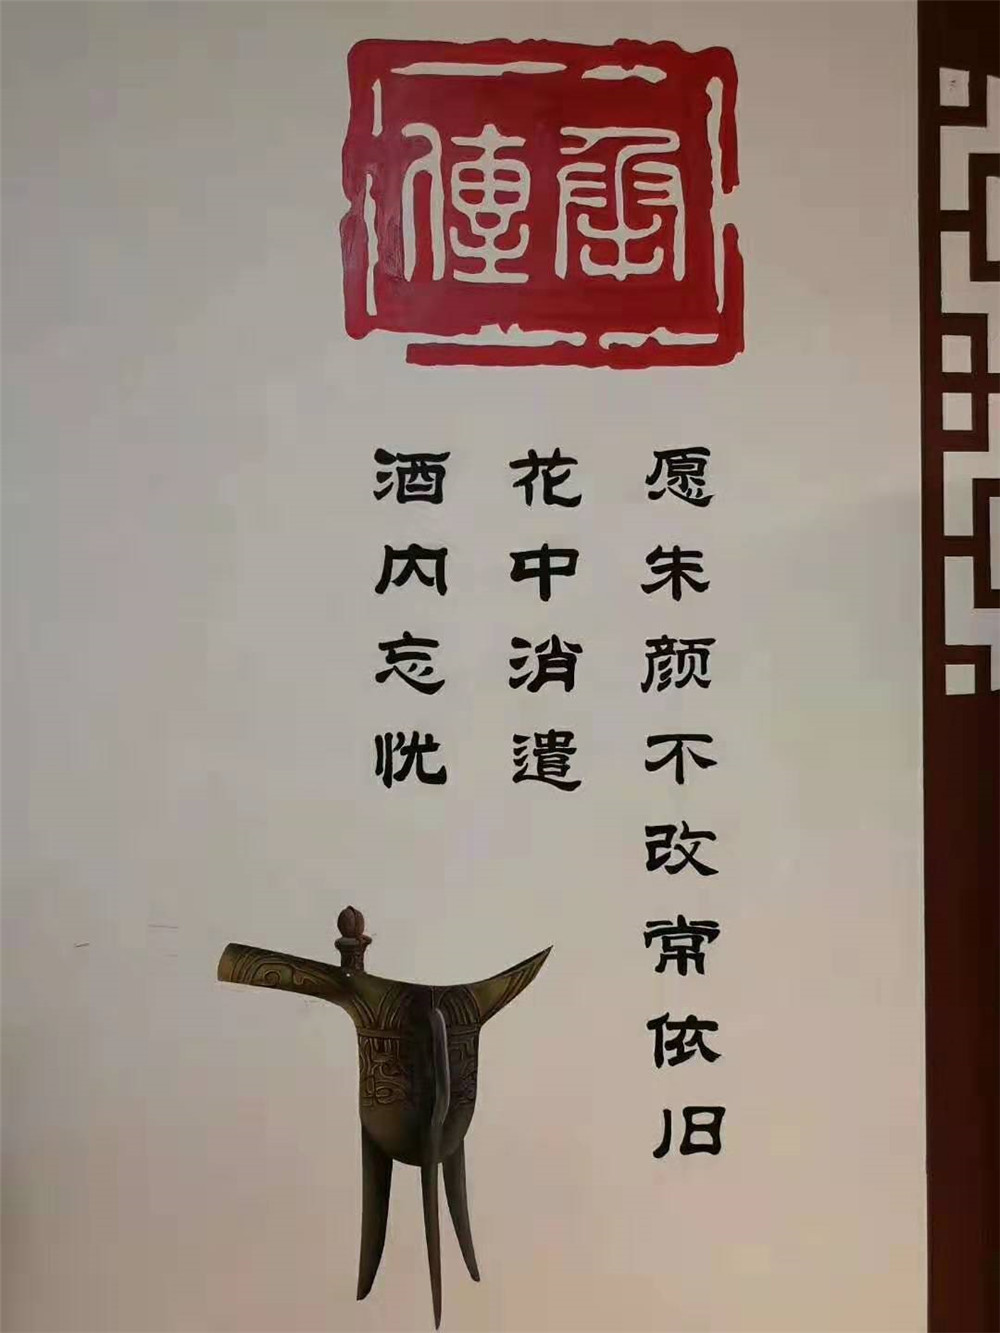 愿朱颜不改常依旧
花中消遣
酒内忘忧